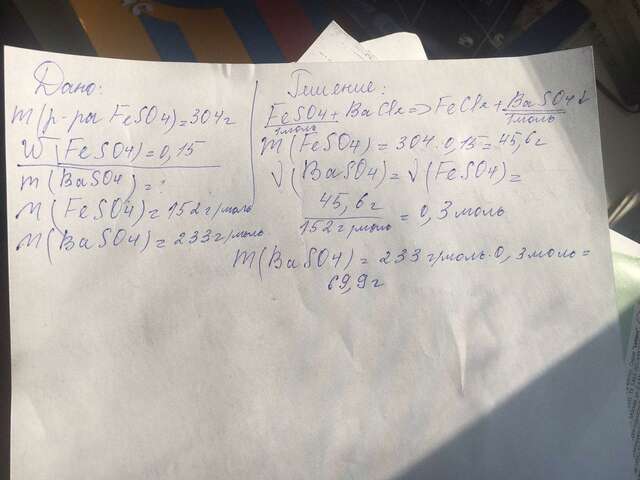 Дано:
m(р-ра FeSO4)=304г
W (FeSO4)=0,15
m(BaSO4)=?
M(FeSO4)=152г/моль
M(BaSO4)=233г/моль
Решение:
FeSO4+BaCl2=>FeCl2+BaSO4↓
1моль 1моль
m(FeSO4)=304·0,15=45,6г
√(BaSO4)=√(FeSO4)=
45,6г
152г/моль = 0,3моль
m(BaSO4)=233г/моль·0,3моль=
69,9г